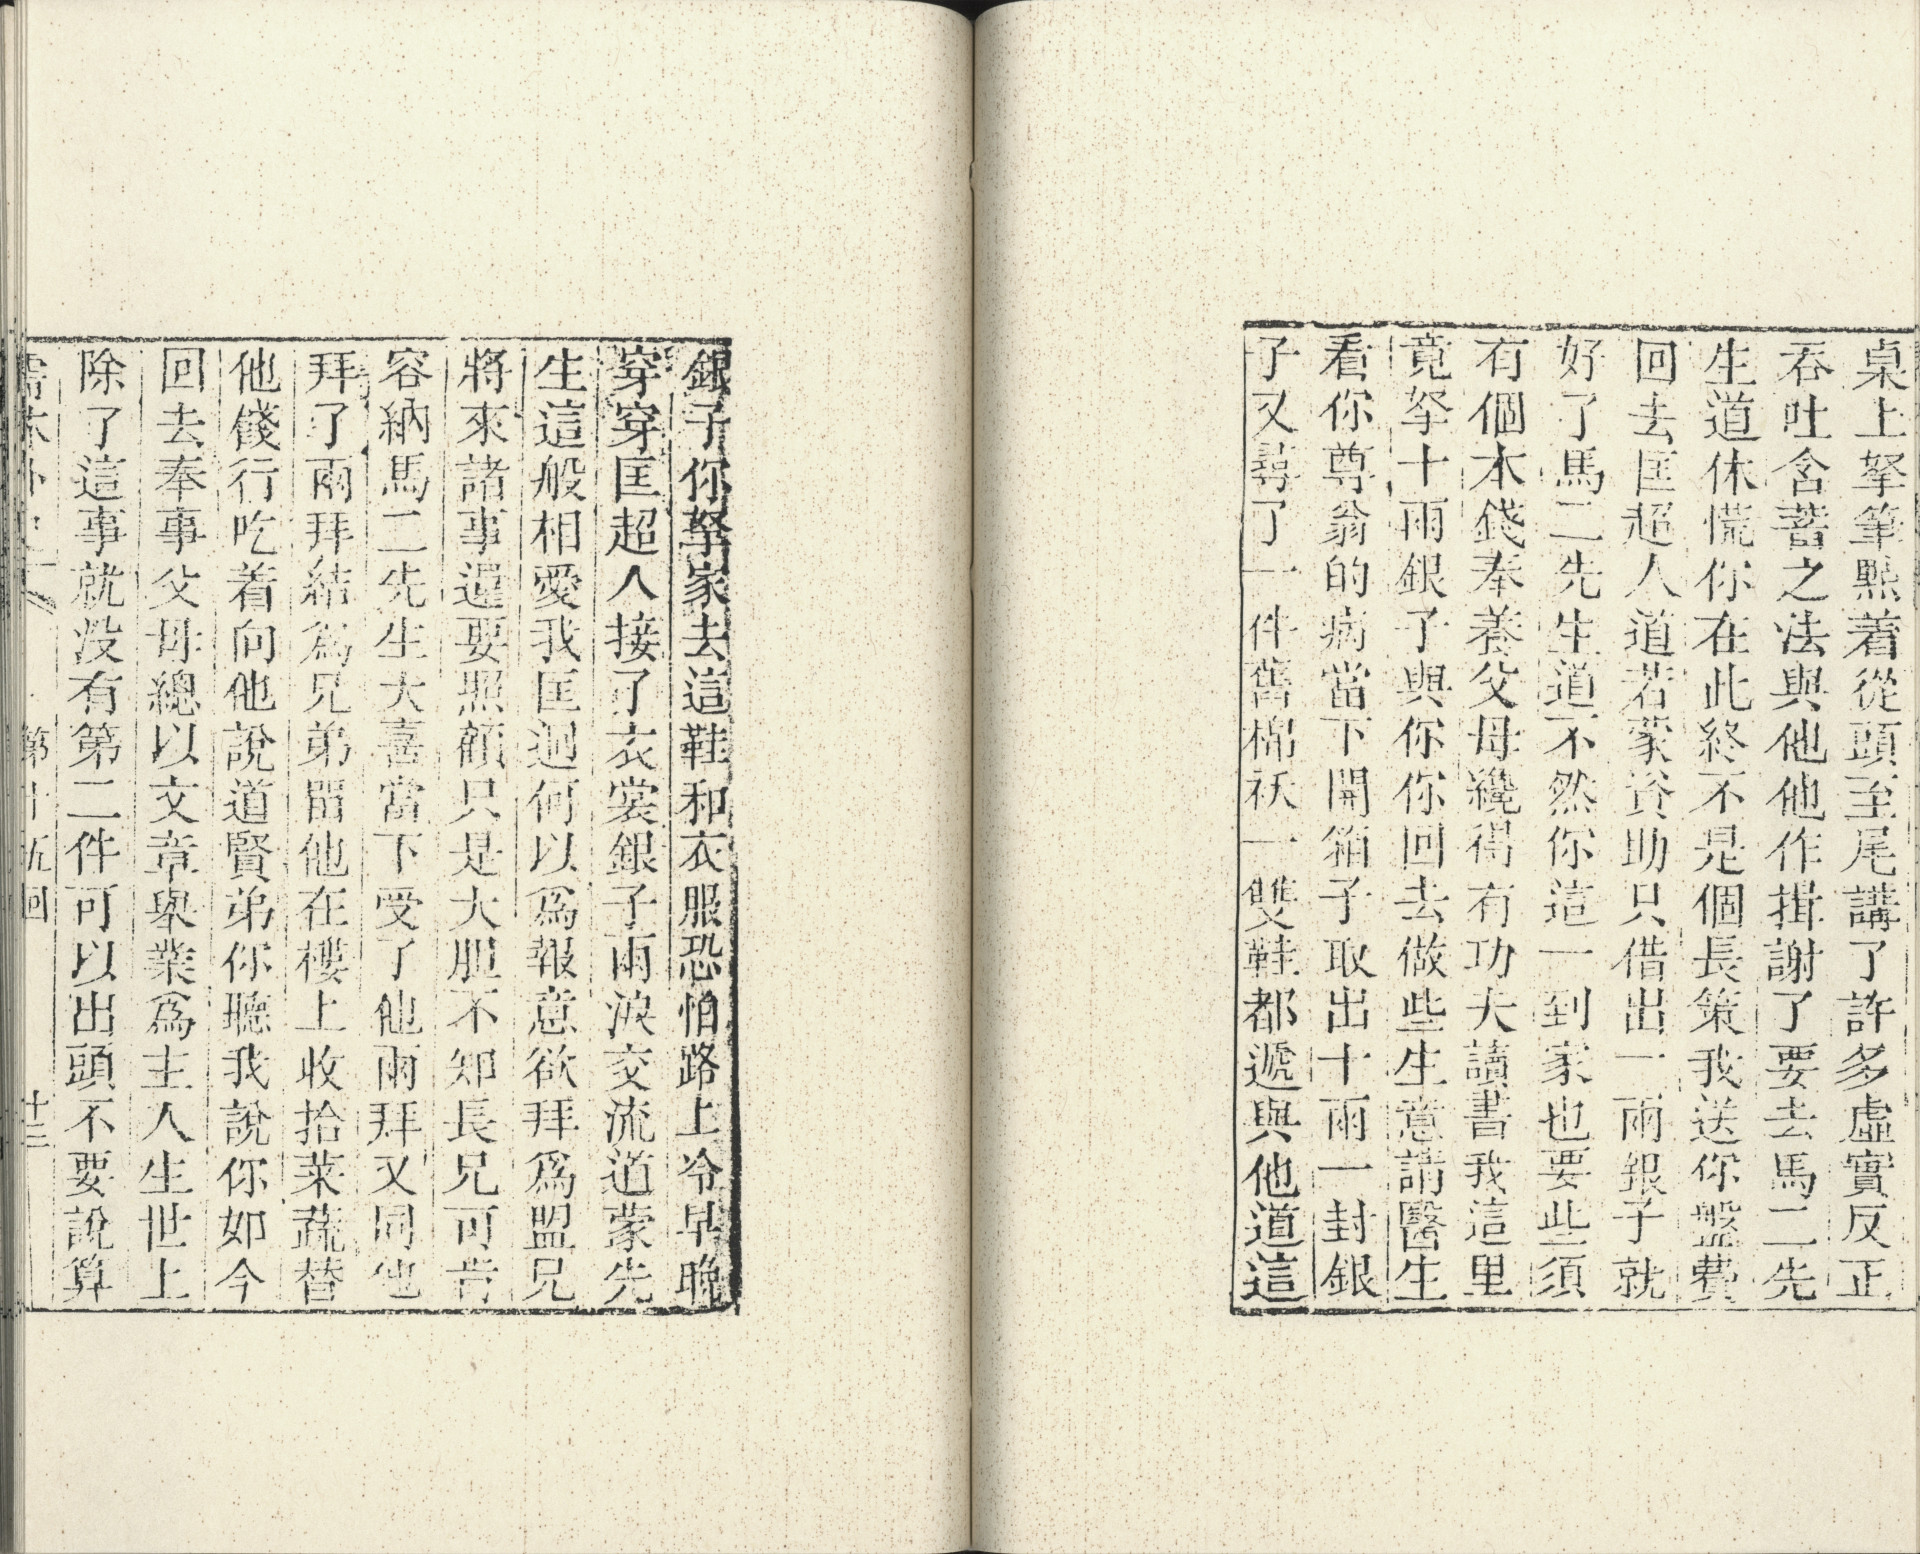 桌上拏筆㸃着從頭至尾講了許多虛實反正
吞吐含蓄之法與他他作揖謝了要去馬二先
生道休慌你在此終不是個長策我送你盤費
回去匡超人道若蒙資助只借出一兩銀子就
好了馬二先生道不然你這一到家也要些須
有個本錢奉養父母纔得有功夫讀書我這里
竟拏十兩銀子與你你回去做些生意請醫生
看你尊翁的病當下開箱子取出十兩一封銀
子又尋了一件舊棉袄一雙鞋都遞與他道這
銀子你拏家去這鞋和衣服恐怕路上冷早晚
穿穿匡超人接了衣裳銀子兩淚交流道蒙先
生這般相愛我匡迥何以爲報意欲拜爲盟兄
將來諸事還要照顧只是大胆不知長兄可肯
容納馬二先生大喜當下受了他兩拜又同他
拜了兩拜結爲兄弟畱他在樓上收拾菜蔬替
他餞行吃着向他說道賢弟你聽我說你如今
回去奉事父母總以文章舉業爲主人生世上
除了這事就沒有第二件可以出頭不要說算
儒林外史 第十五回 十三